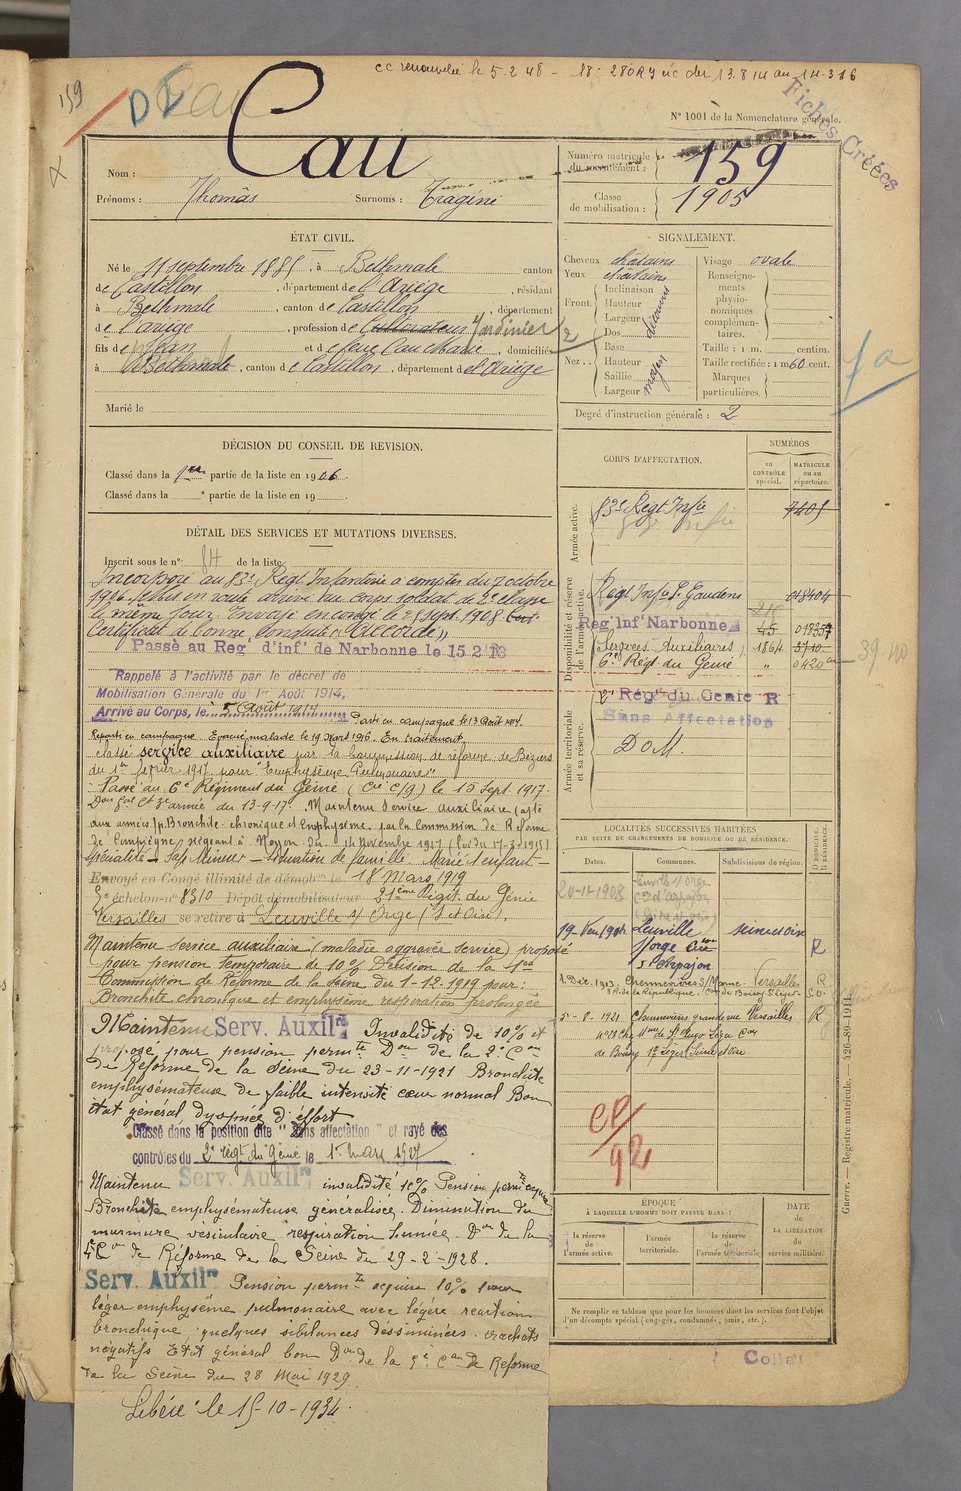 cc renouvelée le 5.2.48 - 18: 280RY uc du 13.8.14 au 14.3.16
159
Fiches Créées
N° 1001 de la Nomenclature générale.
Nom : Cau
Prénoms : Thomas Surnoms : Tragine
Numéro matricule du recrutement : 159
Classe de mobilisation : 1905
ÉTAT CIVIL.
Né le 11 septembre 1885, à Bethmale canton
de Castillon, département de l'Ariège, résidant
à Bethmale, canton de Castillon, département
de l'ariège, profession de Cultivateur Jardinier
fils de Jean et de feue Cau Marie, domiciliés
à Bethmale, canton de Castillon, département de l'Ariège
Marié le
SIGNALEMENT.
Cheveux châtains
Yeux châtains
Front. Inclinaison
Hauteur
Largeur
découvert
Nez. Dos
Base
Hauteur
Saillie
Largeur
moyen
Visage ovale
Renseignements physionomiques complémentaires.
Taille : 1 m. centim.
Taille rectifiée : 1 m 60 cent.
Marques particulières.
Degré d'instruction générale : 2
DÉCISION DU CONSEIL DE REVISION.
Classé dans la 1re partie de la liste en 1906
Classé dans la e partie de la liste en 19
DÉTAIL DES SERVICES ET MUTATIONS DIVERSES.
Inscrit sous le n° 84 de la liste
Incorporé au 83e Régt Infanterie a compter du 7 octobre
1906.
le même jour. Envoyé en congé le 25 Sept. 1908.
Certificat de bonne conduite "Accordé"
Passé au Reg d'inf de Narbonne le 15 2 13
Rappelé à l'activité par le décret de
Mobilisation Générale du 1er Août 1914,
Arrivé au Corps, le 5 Août 1914 Parti en campagne le 13 Août 1914.
Reparti en campagne. Evacué malade le 19 Mars 1916. En traitement
classé service auxiliaire par la Commission de réforme de Béziers
du 1er février 1917 pour "Emphysème Pulmonaire"
Passé au 6e Régiment du Génie (Cie C/9) le 10 Sept. 1917.
Don Gal Ct 3e armée du 13-9-17. Maintenu Service auxiliaire (apte
aux armées) p. Bronchite chronique et Emphysème par la Commission de Réforme
de Compiègne siégeant à Noyon du 14 Novembre 1917
Spécialité - Sap. Mineur - Situation de famille. Marié 1 enfant
Envoyé en Congé illimité de démob le 18 mars 1919
5e échelon n° 8310 Dépôt démobilisateur 21eme Régit. du Génie
Versailles se retire à Leuville s/ Orge (S et Oise).
Maintenu Service auxiliaire (maladie aggravée service) proposé
pour pension temporaire de 10% Décision de la 1re
Commission de Réforme de la Seine du 1-12-1919 pour :
Bronchite chronique et emphysème respiration prolongée
Maintenu Serv. Auxilre Invalidité de 10% et
proposé pour pension permte Don de la 2e Con
de Réforme de la Seine du 23-11-1921 Bronchite
emphysémateuse de faible intensité cœur normal Bon
état général dyspnée d'effort
Classé dans la position dite " Sans affectation " et rayé des
contrôles du 2e régt du Génie le 1er mars 1927
Maintenu Serv. Auxilre invalidité 10% Pension permte acquise
Bronchite emphysémateuse généralisée. Diminution du
murmure vésiculaire respiration humée. Don de la
4e Con de Réforme de la Seine du 29-2-1928.
Serv. Auxilre Pension permte acquise 10% pour
léger emphysème pulmonaire avec légère réaction
bronchique, quelques sibilances disséminées. crachats
négatifs Etat général bon Don de la 5e Con de Réforme
de la Seine du 28 Mai 1929
Libéré le 15-10-1934.
CORPS D'AFFECTATION.
NUMÉROS
au CONTRÔLE spécial. MATRICULE ou au répertoire.
Armée active.
83e Régt Infie 7405
Disponibilité et réserve de l'armée active.
Régt Infie St Gaudens 018404
Reg Inf Narbonne 45 018357
Services Auxiliaires 1864 3710
6e Régt du Génie " 0420
39-40
Armée territoriale et sa réserve.
2e Régt du Génie R
Sans Affectation
DOM.
LOCALITÉS SUCCESSIVES HABITÉES
PAR SUITE DE CHANGEMENTS DE DOMICILE OU DE RÉSIDENCE.
Dates. Communes. Subdivisions de région. D DOMICILE. R RÉSIDENCE.
20-11-1908 Leuville s/ Orge Con d'arpajon
Leuville s/orge Con d'arpajon seine et oise R
1. Déc. 1913. Chennevières s/ Marne Versailles R.
5-8-1921 Chennevières grande rue Versailles R
de Boissy St Léger Seine et oise
CP/92
ÉPOQUE
À LAQUELLE L'HOMME DOIT PASSER DANS :
la réserve de l'armée active. l'armée territoriale. la réserve de l'armée territoriale.
DATE de LA LIBÉRATION du service militaire.
Ne remplir ce tableau que pour les hommes dont les services font l'objet
d'un décompte spécial (engagés, condamnés, omis, etc.).
Guerre. — Registre matricule. — 426-89-1911.